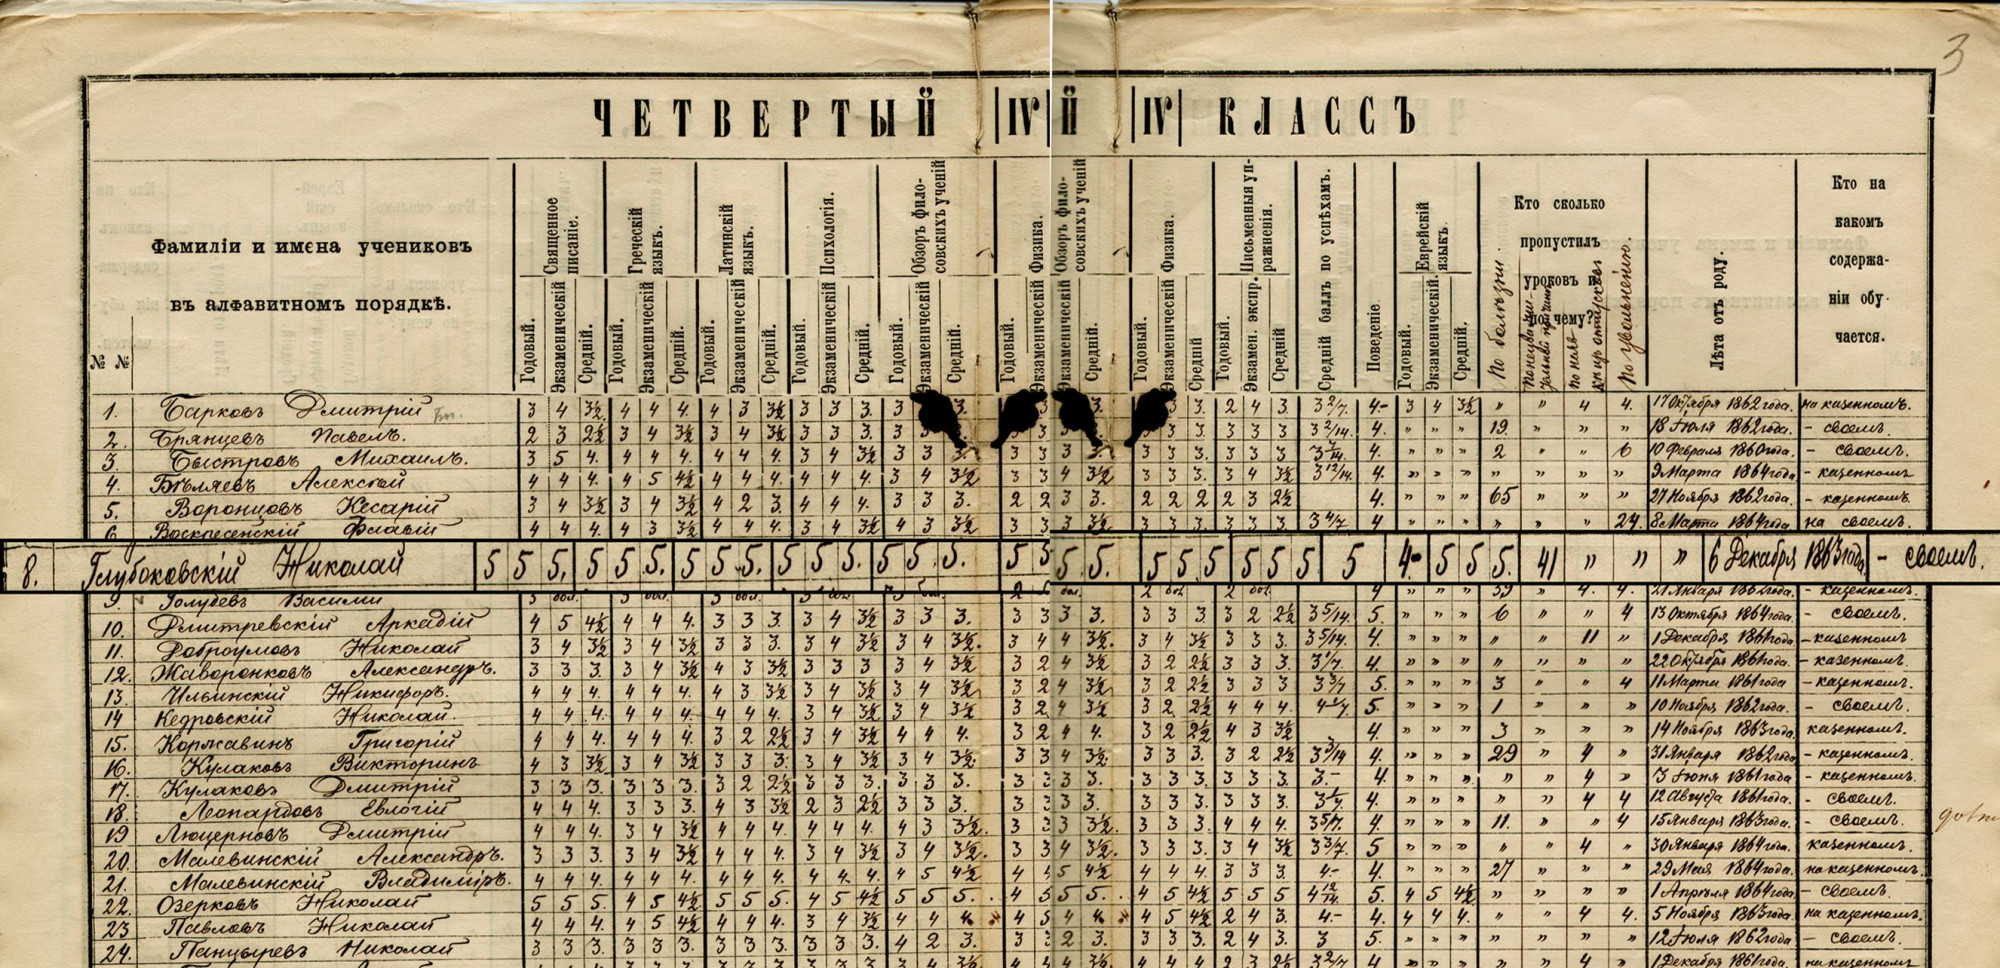 3
ЧЕТВЕРТЫЙ IV Й IV КЛАССЪ
№ № Фамиліи и имена учениковъ въ алфавитномъ порядкѣ.
Священное писаніе.
Греческій языкъ.
Латинскій языкъ.
Психологія.
Обзоръ философскихъ ученій
Физика.
Обзоръ философскихъ ученій
Физика.
Письменныя упражненія.
Средній баллъ по успѣхамъ.
Поведеніе
Еврейскій языкъ.
Кто сколько пропустилъ уроковъ и почему?
Лѣта отъ роду.
Кто на какомъ содержаніи обучается.
Годовый. Экзаменическій Средній. Годовый. Экзаменическій Средній. Годовый. Экзаменическій Средній. Годовый. Экзаменическій Средній. Годовый. Экзаменическій Средній. Годовый. Экзаменическій Экзаменическій Средній. Годовый. Экзаменическій Средній Годовый. Экзамен. экспр. Средній Годовый. Экзаменическій. Средній.
По болѣзни. По увольненію.
1. Барковъ Дмитрій 3 4 3½ 4 4 4. 4 3 3½ 3 3 3. 3 3. 3 3. 3 3. 2 4 3. 3 2/7. 4- 3 4 3½ " " 4 4. 17 Октября 1862 года. на казенномъ.
2. Брянцевъ Павелъ. 2 3 2½ 3 4 3½ 3 4 3½ 3 3 3. 3 3 3 3 3 3. 3 3 3 3 2/14. 4. " " " 19. " " " 18 Іюля 1862 года. - своемъ.
3. Быстровъ Михаилъ. 3 5 4. 4 4 4. 4 4 4. 3 4 3½ 3 3 3. 3 3 3 3. 3 3 3. 3 3 3. 4. " " " 2 " " 6 10 Февраля 1860 года. - своемъ.
4. Бѣляевъ Алексѣй 4 4 4. 4 5 4½ 4 4 4. 4 4 4. 3 4 3½ 3 3 4 3½ 3 3 3. 3 4 3½ 3 12/14. 4. " " " " " " " 9 Марта 1864 года - казенномъ
5. Воронцовъ Кесарій 3 4 3½ 3 4 3½ 4 2 3. 4 4 4. 3 3 3. 2 2 3 3. 2 2 2 2 3 2½ 4. " " " 65 " " " 27 Ноября 1862 года. - казенномъ
6 Воскресенскій Флавій 4 4 4. 4 3 3½ 4 4 4. 3 4 3½ 4 3 3½ 3 3 3 3½ 3 3 3. 3 3 3. 3 4/7 4 " " " " " " 24. 8 Марта 1864 года. на своемъ.
8. Глубоковскій Николай 5 5 5. 5 5 5. 5 5 5. 5 5 5. 5 5 5. 5 5 5 5. 5 5 5 5 5 5 5 4- 5 5 5. 41 " " " 6 Декабря 1863 года - своемъ.
9. Голубевъ Василій 3 бол. 3 бол. 3 бол. 3 бол. 3 бол. 2 бол. 2 бол. 2 бол. 4 " " " 39 " 4. 4. 21 Января 1862 года. - казенномъ.
10. Дмитревскій Аркадій 4 5 4½ 4 4 4. 3 3 3. 3 4 3½ 3 3 3. 3 3 3 3. 3 3 3. 3 2 2½ 3 5/14. 5. " " " 6 " " 4 13 Октября 1864 года - своемъ.
11. Доброумовъ Николай 3 4 3½ 3 4 3½ 3 3 3. 3 4 3½ 3 4 3½. 3 4 4 3½. 3 4 3½ 3 3 3. 3 5/14. 4. " " " " " 11 " 1 Декабря 1861 года. - казенномъ
12. Жаворонковъ Александръ. 3 3 3. 3 4 3½ 4 3 3½ 3 3 3 3 4 3½ 3 2 4 3½ 3 2 2½ 3 3 3. 3 1/7. 4. " " " " " " " 22 Октября 1861 года. - казенномъ.
13. Ильинскій Никифоръ. 4 4 4. 4 4 4. 4 3 3½ 3 4 3½ 3 4 3½ 3 2 4 3½ 3 2 2½ 3 3 3 3 3/7 5. " " " 3 " " 4 11 Марта 1861 года - казенномъ.
14 Кедровскій Николай. 4 4 4. 4 4 4. 4 4 4. 3 4 3½ 3 4 3½ 3 2 4 3½ 3 2 2½ 4 4 4. 5. " " " 1 " " " 10 Ноября 1862 года. - своемъ.
15. Коржавинъ Григорій 4 4 4. 4 4 4. 3 2 2½ 3 4 3½ 4 4 4. 3 2 4 4. 3 2 2½ 4 3 3½ 4. " " " 3 " " " 14 Ноября 1863 года. казенномъ.
16 Кулаковъ Викторинъ 4 3 3½ 3 4 3½ 3 3 3. 3 4 3½ 3 4 3½. 3 3 4 3½. 3 3 3. 3 2 2½ 4. " " " 29 " 4 " 31 Января 1862 года. - казенномъ.
17. Кулаковъ Дмитрій 3 3 3. 3 3 3. 3 2 2½ 3 3 3. 3 3 3. 3 3 3 3. 3 3 3. 3 3 3. 3.- 4. " " " " " 4 " 3 Іюня 1861 года - казенномъ.
18. Леопардовъ Евлогій 4 4 4. 3 3 3. 4 3 3½ 2 3 2½ 3 3 3. 3 3 3 3. 3 3 3. 3 3 3. 3 1/7 4. " " " " " 4 4 12 Августа 1861 года. - своемъ.
19 Люцерновъ Дмитрій 4 4 4. 3 4 3½ 4 4 4. 4 4 4. 4 3 3½. 3 3 3 3½. 3 3 3. 4 4 4. 3 5/7. 4. " " " 11. " " 4 15 Января 1863 года. - своемъ.
20. Малевинскій Александръ. 3 3 3. 3 4 3½ 4 4 4. 3 4 3½ 3 4 3½. 3 3 4 3½. 3 3 3. 3 4 3½ 3 3/7 5 " " " " " 4 " 30 Января 1864 года. казенномъ.
21. Малевинскій Владиміръ. 4 4 4. 4 4 4. 4 4 4. 4 4 4. 4 5 4½ 4 4 5 4½ 4 4 4. 3 3 3. 4.- 4. " " " 27 " " " 29 Мая 1864 года. на казенномъ.
22. Озерковъ Николай 5 5 5. 4 5 4½ 5 5 5. 4 5 4½ 5 5 5. 4 5 5 5. 4 5 4½ 5 5 5 4 12/14. 5. 4 5 4½ " " " " 1 Апрѣля 1864 года. - своемъ.
23 Павловъ Николай 4 4 4. 4 5 4½ 4 4 4. 3 4 3½ 4 4 4. 4 5 4 4. 4 5 4½ 2 4 3. 4.- 4. 4 4 4. " " 4 4. 5 Ноября 1863 года. на казенномъ.
24. Панцыревъ Николай 3 3 3. 3 3 3. 3 3 3. 3 3 3. 4 2 3. 3 3 2 3. 3 3 3. 2 4 3. 3 5. " " " " " " " 12 Іюля 1862 года - своемъ.
1 Декабря 1861 года. на казенномъ